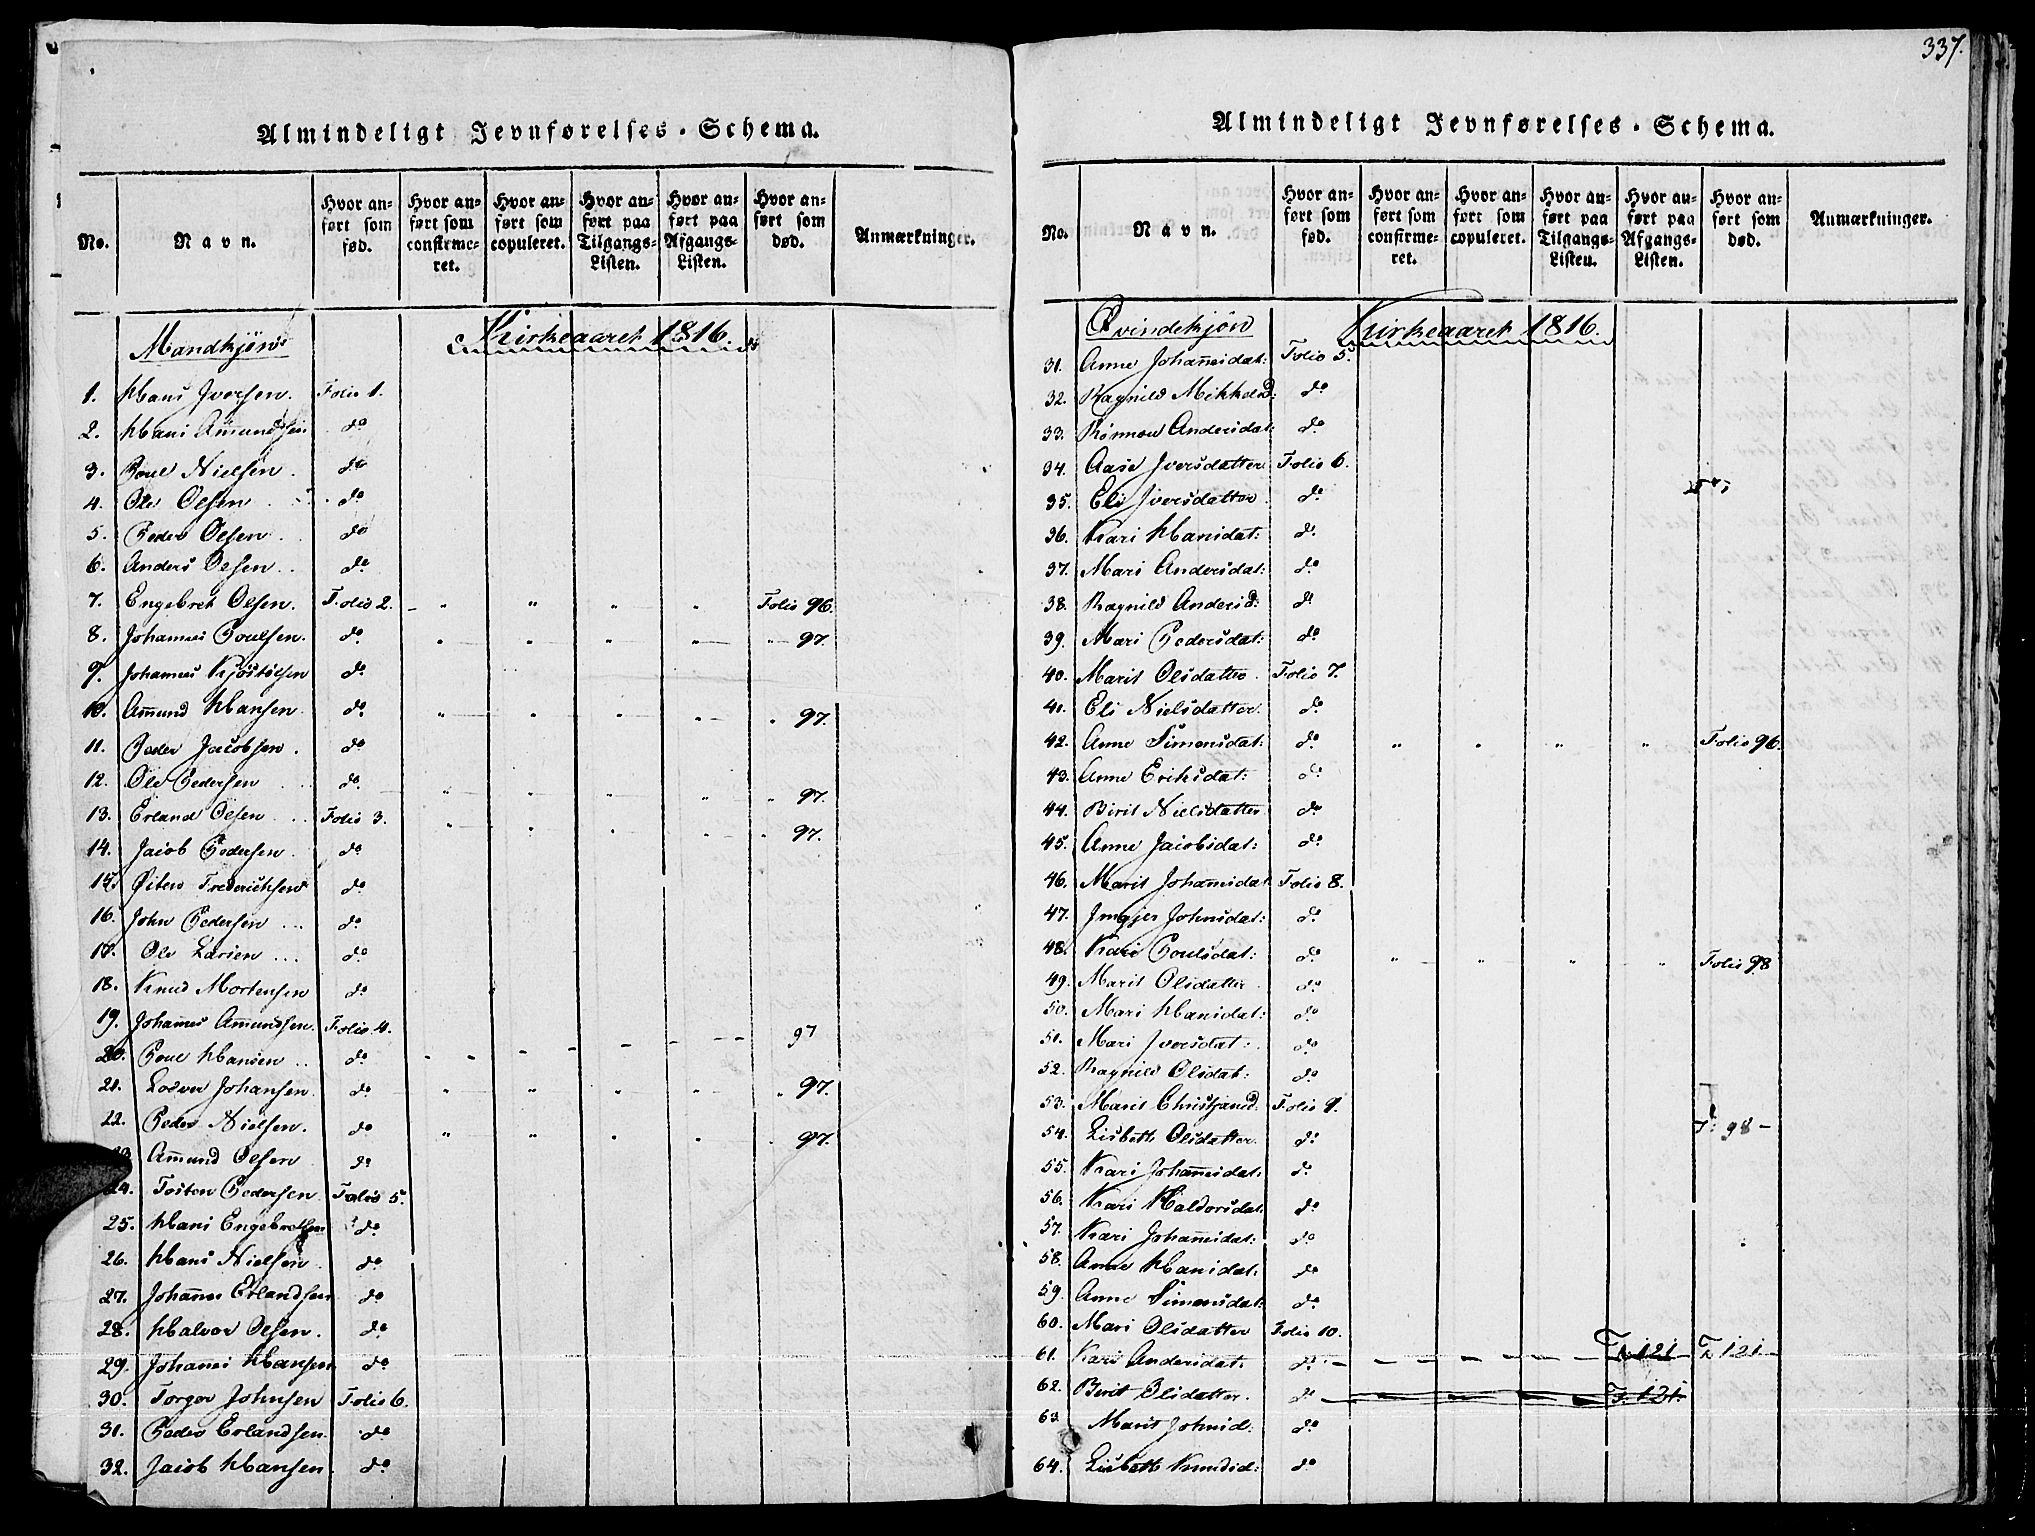 337.
Almindeligt Jevnførelses-Schema.
No. Navn. Hvor anført som fød. Hvor anført som confirmeret. Hvor anført som copuleret. Hvor anført paa Tilgangs-Listen. Hvor anført paa Afgangs-Listen. Hvor anført som død. Anmærkninger.
Mandkjøn Kirkeaaret 1816.
1. Hans Iversen Folio 1.
2. Hans Amundsen do
3. Poul Nielsen. do
4. Ole Olsen do
5. Peder Olsen do
6. Anders Olsen do
7. Engebret Olsen. Folio 2. - " " " " Folio 96.
8. Johannes Poulsen. do " " " " " 97.
9. Johannes do
10. Amund Hansen do " " " " " 97.
11. Peder Jacobsen. do
12. Ole Pedersen do " " " " " 97.
13. Erland Olsen Folio 3. " " " " " 97.
14. Jacob Pedersen. do
15. Østen Frederichsen do
16. John Pedersen do
17. Ole Larsen do
18. Knud Mortensen do
19. Johannes Amundsen. Folio 4.
20. Poul Hansen do - - - - - - 97
21. Lodver Johansen. do " " " " 97.
22. Peder Nielsen. do " " " " " 97.
Amund Olsen do
24. Tosten Pedersen. Folio 5.
25. Hans Engebretsen do
26. Hans Nielsen do
27. Johannes Erlandsen do
28. Halvor Olsen. do
29. Johannes Hansen do
30. Torger Johnsen Folio 6.
31. Peder Erlandsen. do
32. Jacob Hansen. do
Almindeligt Jevnførelses-Schema.
No. Navn. Hvor anført som fød. Hvor anført som confirmeret. Hvor anført som copuleret. Hvor anført paa Tilgangs-Listen. Hvor anført paa Afgangs-Listen. Hvor anført som død. Anmærkninger.
Qvindekjøn Kirkeaaret 1816.
31. Anne Johannisdat: Folio 5.
32. Ragnild do
33. Rønnou Andersdat: do
34. Aase Iversdatter Folio 6.
35. Eli Iversdatter do
36. Kari Hansdat: do
37. Mari Andersdat: do
38. Ragnild Andersd: do
39. Mari Pedersdat: do
40. Marit Olsdatter. Folio 7.
41. Eli Nielsdatter. do
42. Anne Simensdat: do " " " " Folio 96.
43. Anne Eriksdat: do
44. Birit Nielsdatter do
45. Anne Jacobsdat: do
46. Marit Johannisdat Folio 8.
47. Johnsdat: do
48. Kari Poulsdat: do " " " " Folio 98
49. Marit Olsdatter do
50. Mari Hansdat: do
51. Mari Iversdat: do
52. Ragnild Olsdat: do
53. Marit Folio 9.
54. Lisbeth Olsdatter. do F: 98 -
55. Kari Johannisdat: do
56. Kari Haldorsdat: do
57. Kari Johannisdat: do
58. Anne Hansdat: do
59. Anne Simensdat: do
60. Mari Olsdatter Folio 10.
61. Kari Andersdat: do - - - - - F. 121 - F. 121 -
62. Birit Olsdatter. do F. 121.
63 Marit Johnsd: do
64. Lisbeth Knudsd: do